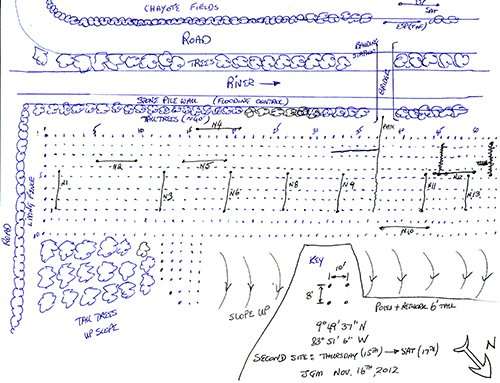 CHAYOTE FIELDS
SAT
ROAD
BANDING
STATION
TREES
BRIDGE
RIVER
STONE PILE WALL (FLOODING CONTROL)
TALL TREES (N40)
N4
5
10
PATH
N2
N5
N12
N1
N3
N6
N8
N9
N11
N13
LIVING FENCE
ROAD
N10
KEY
10'
8'
SLOPE UP
TALL TREES
UP SLOPE
POLE + NETWORK 6' TALL
9° 49' 37" N
83° 51' 6" W
SECOND SITE: THURSDAY (15TH) → SAT (17TH)
JGM NOV. 16TH, 2012
N